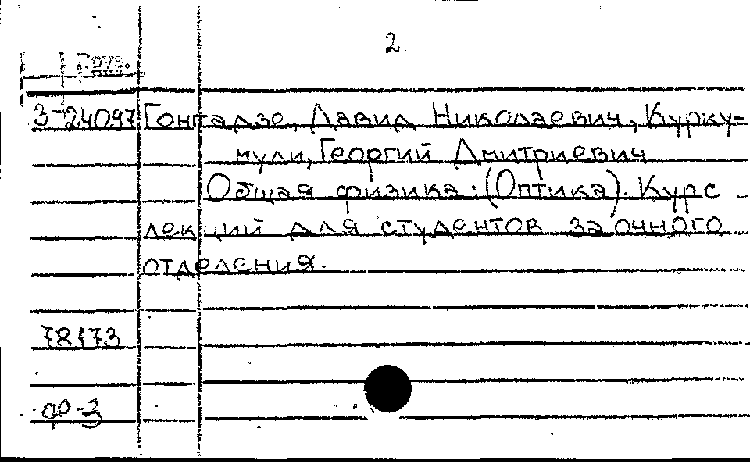 2
Груз.
3-24097 Гонгадзе, Давид Николаевич, Курку-
мули, Георгий Дмитриевич
Общая физика: (Оптика). Курс
лекций для студентов заочного
отделения.
78173
ф-3